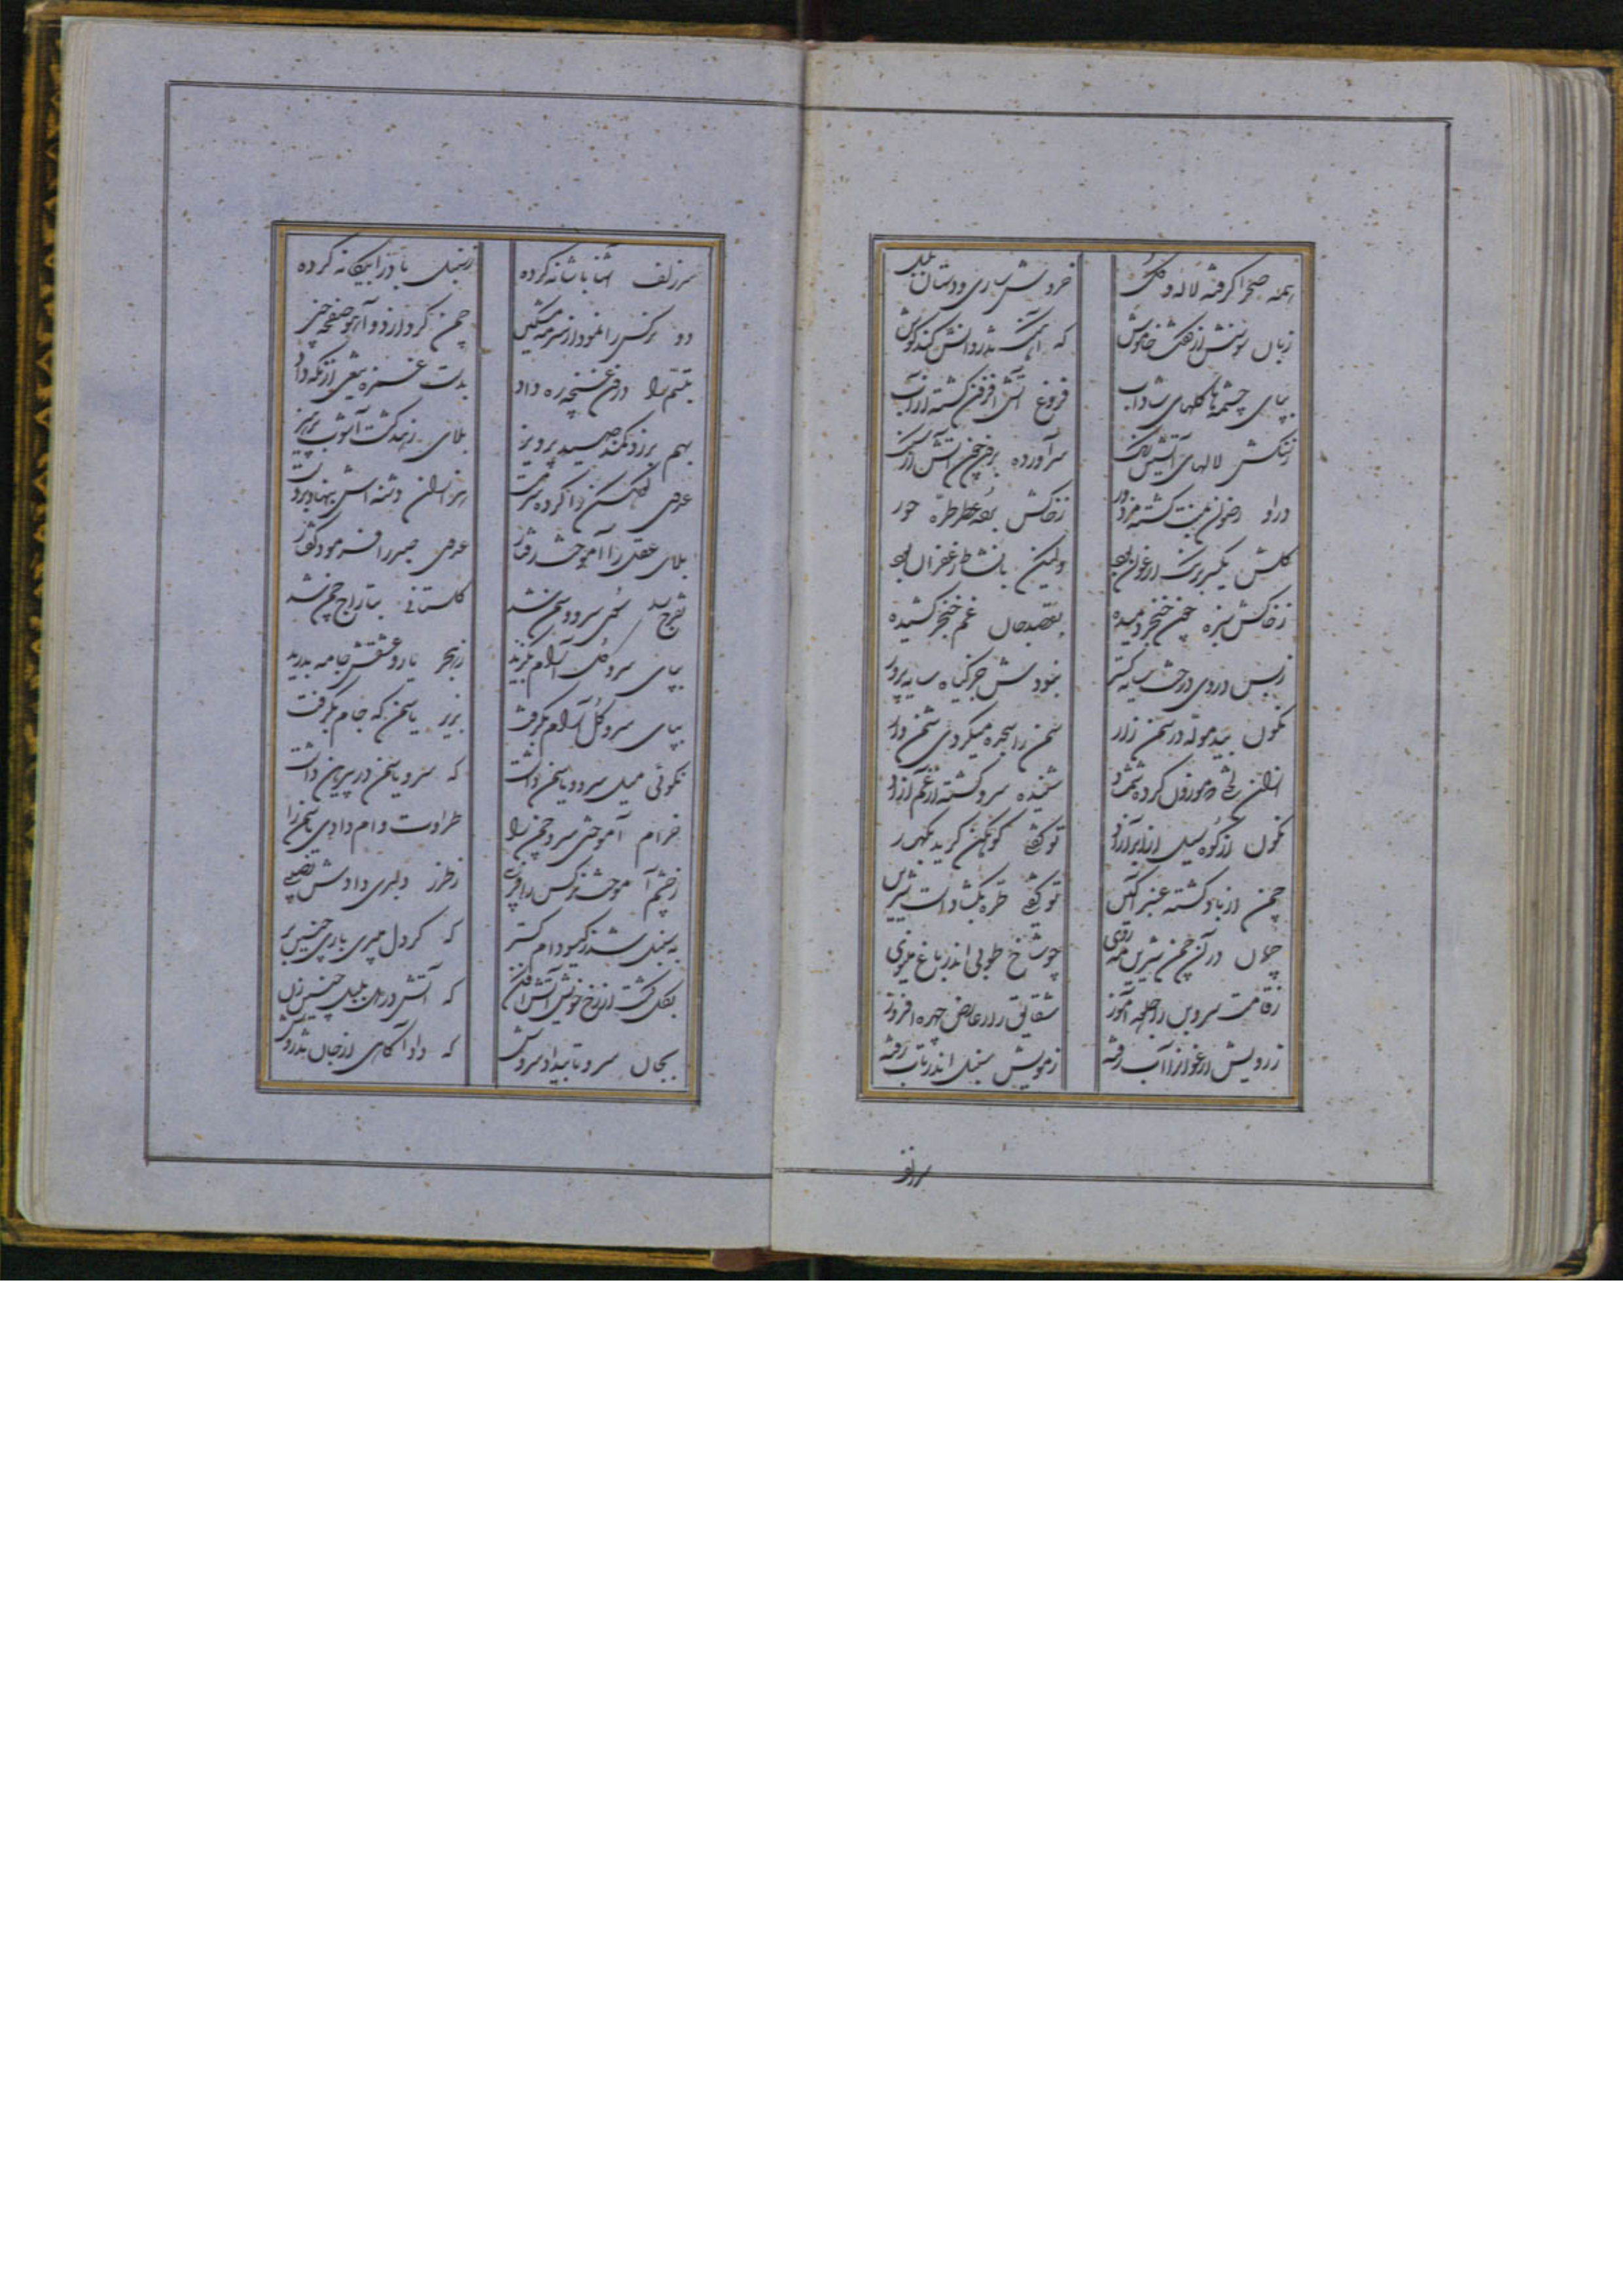 همه صحرا گرفته لاله و گل
خروش ساری و دستان بلبل
زبان سوسنش از گفت خاموش
که آهنگ تذروانش کند گوش
بپای چشمه‌ها گلهای شاداب
فروغ آتش افزون گشته از آب
زسنگش لالهای آتشین رنگ
سر آورده برون چون آتش از سنگ
درو رضوان بمنت گشته مزدور
زخاکش برده عطر طره حور
گلش یکسر برنگ ارغوان بود
ولیکن با نشاط زعفران بود
زخاکش سبزه چون خنجر دمیده
بقصد جان غم خنجر کشیده
زبس در وی درخت سایه گستر
نبودش جز گیاه سایه پرور
نگون بید موله در سمن زار
سمن را سجده میکردی شمن وار
از آن رخت موزون کرده شمشاد
شنیده سرو گشته از غم آزاد
نگون از کوه سیل از ابر آزاد
تو گفتی کوهکن گرید بکهسار
چمن از باد گشته عنبر آگین
تو گفتی طره بگشاد است شیرین
چمان در آن چمن شیرین مه روی
چو شاخ طوبی اندر باغ مینوی
زقامت سروبن را جلوه آموز
شقایق را از عارض چهره افروز
ز رویش ارغوان را آب رفته
زمویش سنبل اندر تاب رفته
سر زلف
سر زلف آشنا با شانه کرده
زسنبل باد را بیگانه کرده
دو نرگس را نمود از سرمه مشکین
چمن کرد از دو آهو صفحه چین
تبسم را درون غنچه ره داد
بدست غمزه تیغی از نگه داد
بهم برزد کمند صید پرویز
بلای زهد گشت آشوب پرهیز
عدوی کوهکن را کرده سرمست
هزاران دشنه‌اش بنهاد بر دست
بلای عقل را آموخت رفتار
عدوی صبر را فرمود گفتار
تفرج را سوی سرو و سمن شد
گلستانی بتاراج چمن شد
بپای سرو گل آرام بگزید
زهجر یار و عشقش جامه بدرید
بپای سرو گل آرام بگرفت
بزیر یاسمن گه جام بگرفت
نکوئی میل سرو و یاسمن داشت
که سرو یاسمن در پیرهن داشت
خرام آموختی سرو چمن را
طراوت وام دادی یاسمن را
زچشم آموخت نرگس را فریبی
زطرز دلبری دادش نصیبی
به سنبل شد زگیسو دام گستر
که گر دل میبری باری چنین بر
بگل گشت از رخ خویش آتش افکن
که آتش در دل بلبل چنین زن
بجان سرو تا بیداد سروش
که داد آگاهی از جان تذروش